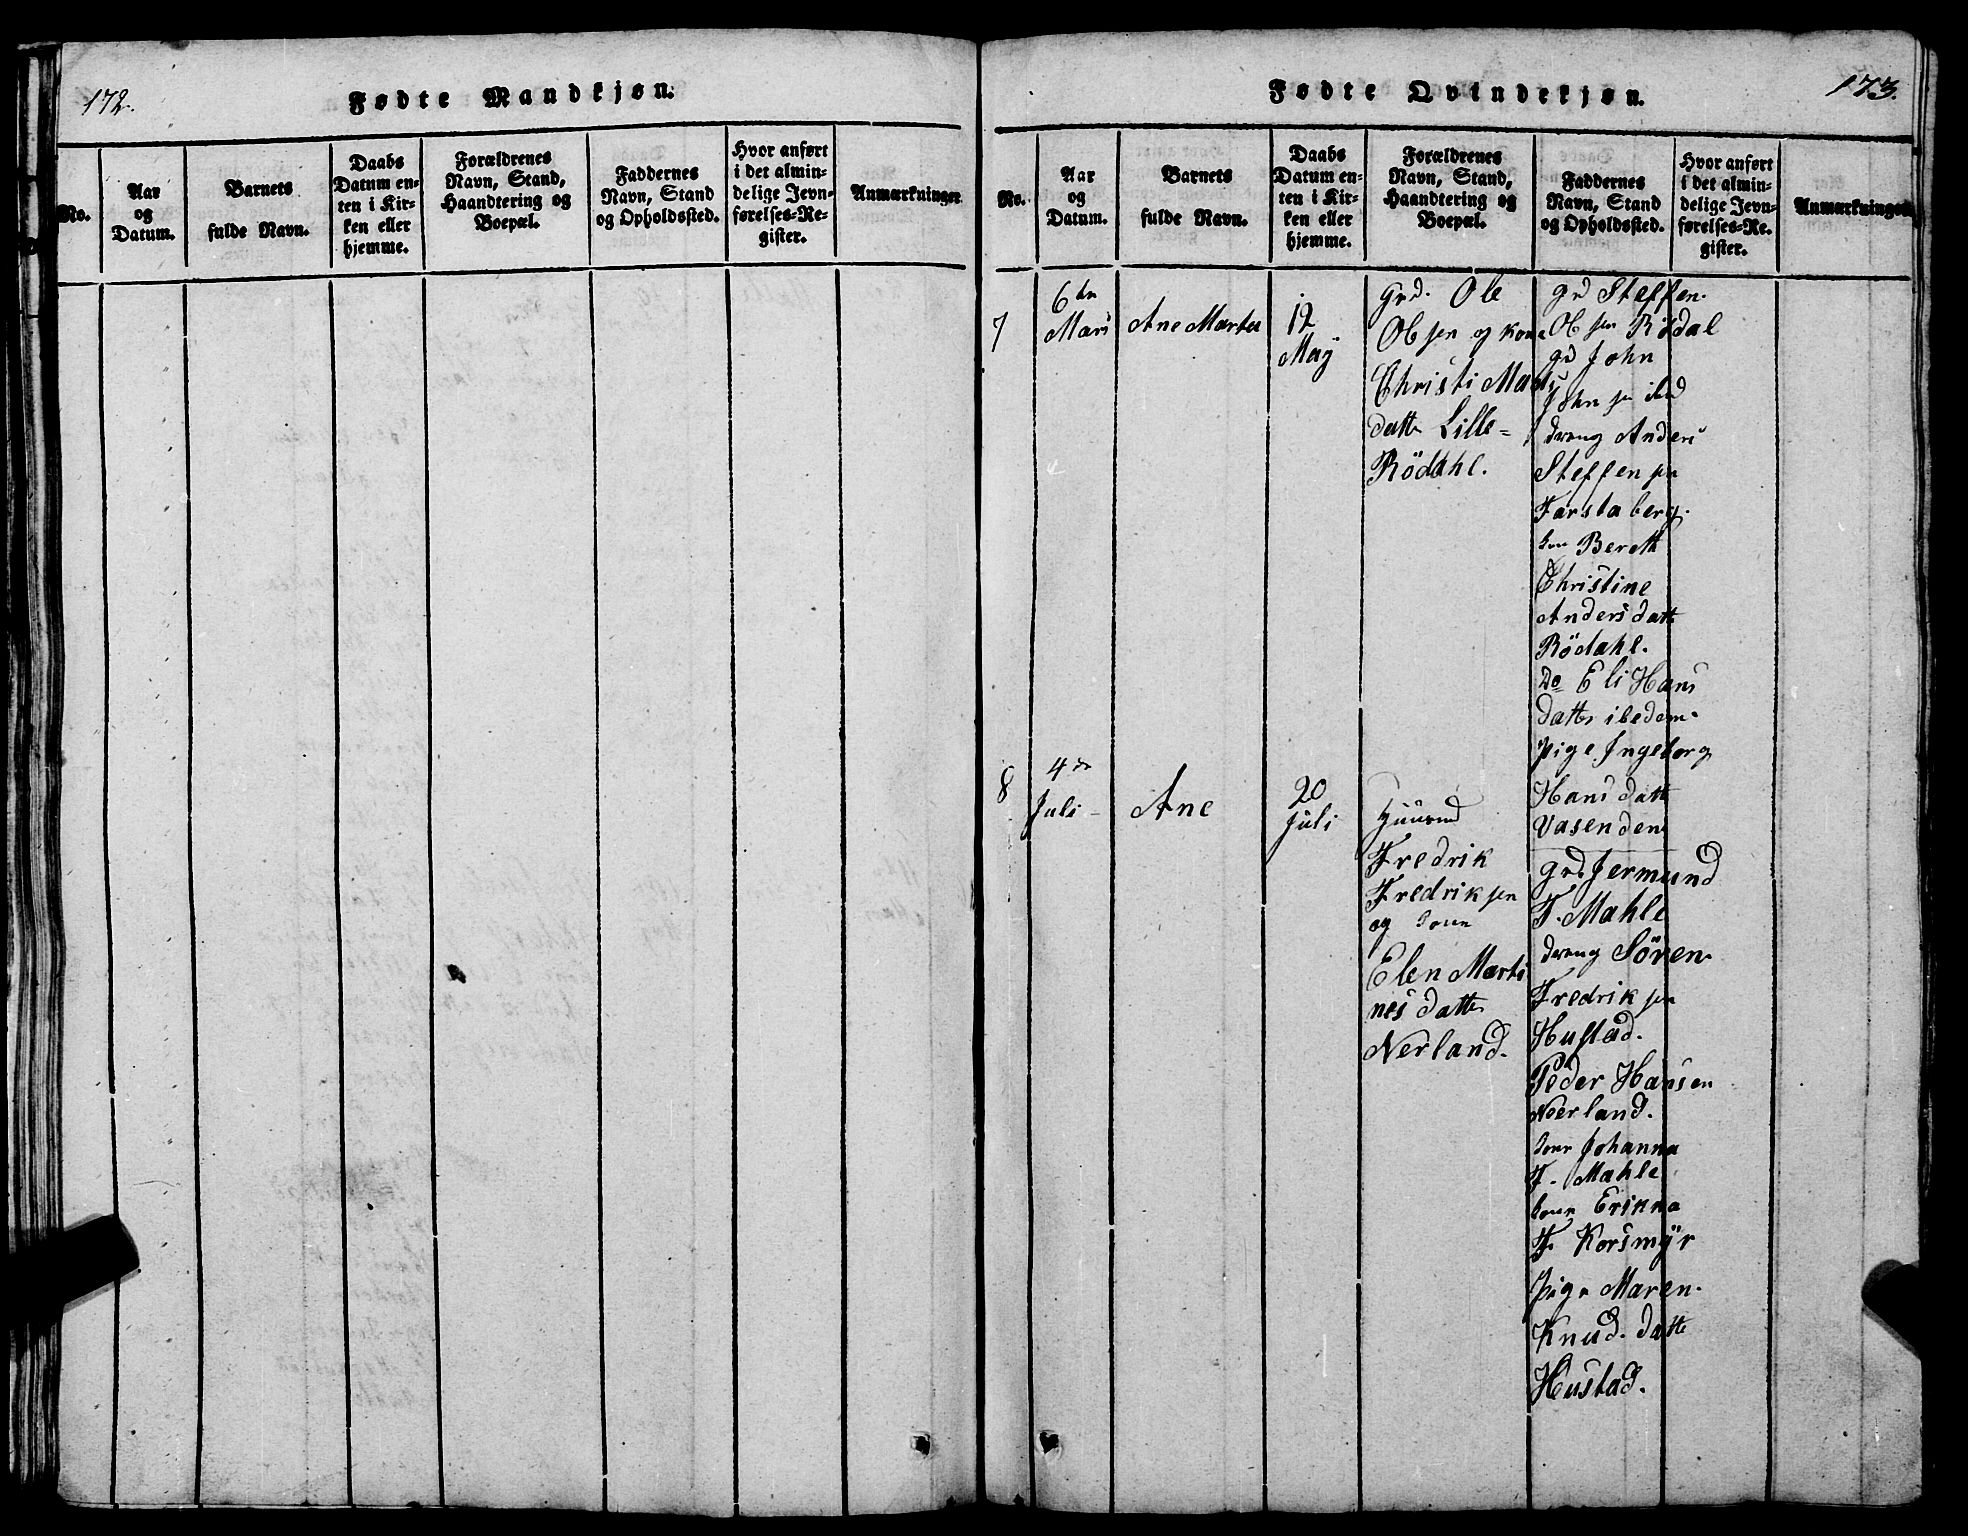 172.
Fødte Mandkjøn.
No.
Aar
og
Datum.
Barnets
fulde Navn.
Daabs
Datum en-
ten i Kir-
ken eller
hjemme.
Forældrenes
Navn, Stand,
Haandtering og
Boepæl.
Faddernes
Navn, Stand
og Opholdssted.
Hvor anført
i det almin-
delige Jevn-
førelses-Re-
gister.
Anmærkninger
Fødte Qvindekjøn.
173.
No.
Aar
og
Datum.
Barnets
fulde Navn.
Daabs
Datum en-
ten i Kir-
ken eller
hjemme.
Forældrenes
Navn, Stand,
Haandtering og
Boepæl.
Faddernes
Navn, Stand
og Opholdssted.
Hvor anført
i det almin-
delige Jevn-
førelses-Re-
gister.
Anmærkninger
7
6te
Mars
Ane Marta
12
Maÿ
Grd. Ole
Olsen og kone
Christi Mads
datte Lille-
Rödahl.
gr Steffen
Olsen Rödal
gr John
Johnsen ibd
dreng Anders
Steffensen
Farstaberg.
kone Bereth
Christine
Andersdatte
Rödahl.
Do Eli Hans
datte ibedem.
Pige Ingeborg
Hansdatte
Vasenden
8
4de
Juli
Ane
20
Juli
Huusmd
Fredrik
Fredriksen
og kone
Elen Marti
nesdatte
Nerland.
grd Jermund
T. Mahle
dreng Sören
Fredriksen
Hustad.
Peder Hansen
Neerland.
kone Johanna
J. Mahle
kone Erikna
F. Korsmÿr
Pige Maren
Knud. datte
Hustad.